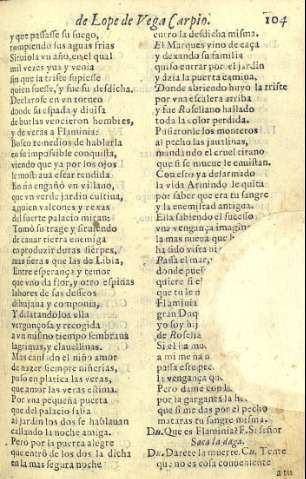 de Lope de Vega Carpio. 104
y que passasse su fuego,
rompiendo sus aguas frias
Siruiola vn año, en el qual
mil vezes yua y venia
sin que la triste supiesse
quien fuesse, y fue su desdicha.
Declarose en vn torneo
donde su espada y diuisa
de burlas vencieron hombres,
y de veras a Flaminia:
Busco remedios de hablarla
en su impossible conquista,
viendo que ya por los ojos
le mostraua estar rendida
En fin engañó vn villano,
que vn verde jardin cultiua,
a quien valcones y rexas
del fuerte palacio miran:
Tomó su trage y siruiendo
de cauar tierra enemiga
en produzir duras sierpes,
mas fieras que las de Libia,
Entre esperança y temor
que vno da flor, y otro espinas
labores de sus desseos
dibujaua y componia,
Y dilatandolos ella
vergonçosa y recogida
a vn mismo tiempo sembraua
lagrimas, y clauellinas.
Mas cansado el niño amor
de hazer siempre niñerias,
puso en platica las veras,
que amor las veras estima.
Por vna pequeña puerta
que del palacio salia
al jardin los dos se hablauan
callando la noche amiga.
Pero por la puerta alegre
que entró de los dos la dicha
en la mas segura noche
entro la desdicha misma.
El Marques vino de caça
y dexando su familia
quiso entrar por el jardin
y azia la puerta camina,
Donde abriendo huyo la triste
por vna escalera arriba
y fue Roseliano hallado
toda la color perdida.
Pusieronle los monteros
al pecho las jaualinas,
mandando el cruel tirano
que si se mueue le enuistan.
Con esto ya desarmado
la vida Arnindo le quita
por saber que era su sangre
y la enemistad antigua.
Ella sabiendo el sucesso
vna vengança
la mas nueua que
ha sido vista ni
Passa el mar,
donde pues
quiere si e
que te le
Flaminia
gran Duq
yo soy hij
de Roselia
Si el
a mi me
passa este pec
la vengança
Pero dame
por la garganta
que si me das por el pecho
mataras tu sangre misma.
Du. Que es Flaminia? F. Si señor
Saca la daga.
Du. Darete la muerte. Cn. Tente
que no es cosa conueniente